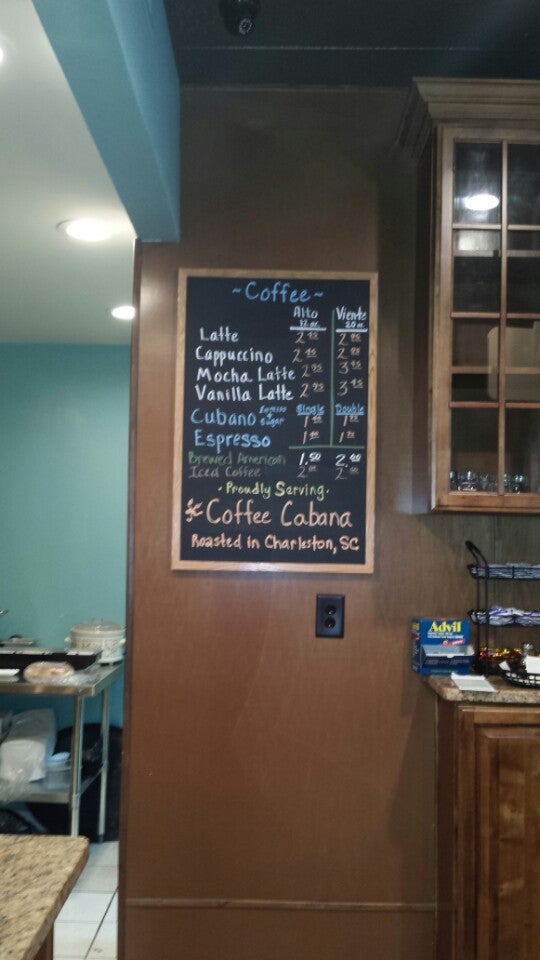 ~Coffee~
Alto Viente
12 oz. 20 oz.
Latte 2.45 2.85
Cappuccino 2.45 2.85
Mocha Latte 2.95 3.45
Vanilla Latte 2.95 3.45
Cubano Espresso + Sugar Single Double
Espresso
Brewed American 1.50 2.00
Iced Coffee
• Proudly Serving •
Coffee Cabana
Roasted in Charleston, SC
Advil